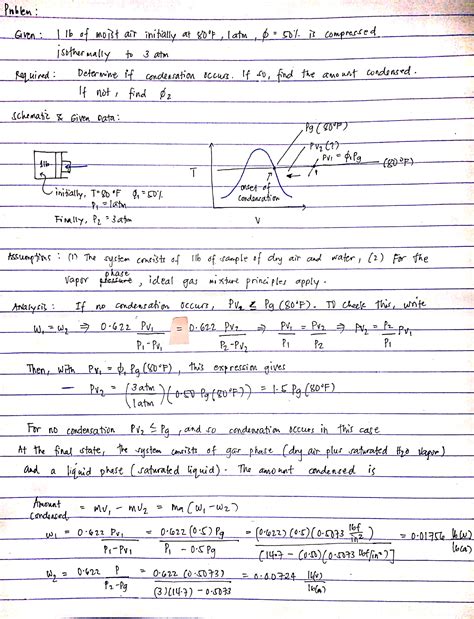 Problem :
Given : 1 lb of moist air initially at 80°F, 1 atm, ϕ = 50% is compressed
isothermally to 3 atm
Required : Determine if condensation occurs. If so, find the amount condensed.
If not, find ϕ2
Schematic & Given Data:
Pg (80°F)
Pv2 (?)
Pv1 = ϕ1 Pg
(80°F)
1lb
T
onset of
condensation
v
initially, T=80°F ϕ1=50%
P1 = 1atm
Finally, P2 = 3atm
Assumptions : (1) The system consists of 1lb of sample of dry air and water, (2) For the
phase
vapor pressure, ideal gas mixture principles apply.
Analysis : If no condensation occurs, Pv2 ≤ Pg (80°F). To check this, write
W1 = W2 ⇒ 0.622 Pv1 / P1-Pv1 = 0.622 Pv2 / P2-Pv2 ⇒ Pv1 / P1 = Pv2 / P2 ⇒ Pv2 = P2 / P1 Pv1
Then, with Pv1 = ϕ1 Pg (80°F), this expression gives
— Pv2 = (3atm / 1atm) (0.50 Pg (80°F)) = 1.5 Pg (80°F)
For no condensation Pv2 ≤ Pg, and so condensation occurs in this case
At the final state, the system consists of gas phase (dry air plus saturated H2O vapor)
and a liquid phase (saturated liquid). The amount condensed is
Amount condensed = mv1 - mv2 = ma (W1-W2)
W1 = 0.622 Pv1 / P1-Pv1 = 0.622 (0.5) Pg / P1 - 0.5Pg = (0.622)(0.5)(0.5073 lbf/in²) / [14.7 - (0.50)(0.5073 lbf/in²)] = 0.01756 lb(v) / lb(a)
W2 = 0.622 P / P2-Pg = 0.622 (0.5073) / (3)(14.7) - 0.5073 = 0.00724 lb(v) / lb(a)